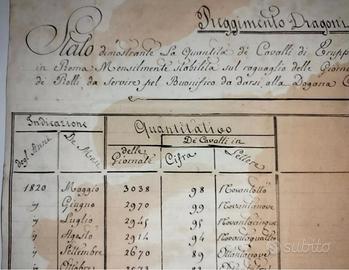 Reggimento Dragoni
Stato dimostrante La Quantità de Cavalli di Trupp
in Roma Mensilmente stabilita sul raguaglio delle Giorna
de Rolli da servire pel Buonifico da darsi alla Dogana C
Indicazione
Quantitativo
Degl'Anni
De Mesi
delle Giornate
De Cavalli in
Cifra
Lettere
1820 Maggio 3038 98 Novantotto
" Giugno 2970 99 Novantanove
" Luglio 2945 95 Novantacinque
" Agosto 2914 94 Novantaquattro
" Settembre 2670 89 Ottantanove
" Ottobre
subito